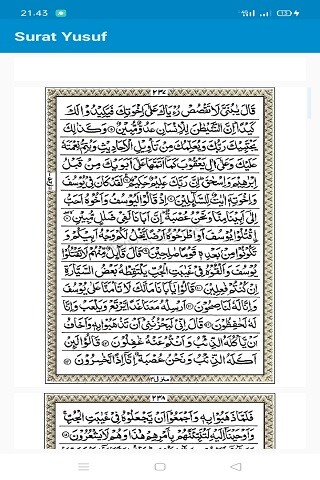 21.43
Surat Yusuf
٢٣٧
قَالَ يٰبُنَىَّ لَا تَقْصُصْ رُءْيَاكَ عَلٰٓى اِخْوَتِكَ فَيَكِيْدُوْا لَكَ
كَيْدًا ؕ اِنَّ الشَّيْطٰنَ لِلْاِنْسَانِ عَدُوٌّ مُّبِيْنٌ ۝ وَكَذٰلِكَ
يَجْتَبِيْكَ رَبُّكَ وَيُعَلِّمُكَ مِنْ تَاْوِيْلِ الْاَحَادِيْثِ وَيُتِمُّ نِعْمَتَهٗ
عَلَيْكَ وَعَلٰٓى اٰلِ يَعْقُوْبَ كَمَاۤ اَتَمَّهَا عَلٰٓى اَبَوَيْكَ مِنْ قَبْلُ
اِبْرٰهِيْمَ وَاِسْحٰقَ ؕ اِنَّ رَبَّكَ عَلِيْمٌ حَكِيْمٌ ۝ لَقَدْ كَانَ فِىْ يُوْسُفَ
وَاِخْوَتِهٖۤ اٰيٰتٌ لِّلسَّآئِلِيْنَ ۝ اِذْ قَالُوْا لَيُوْسُفُ وَاَخُوْهُ اَحَبُّ
اِلٰٓى اَبِيْنَا مِنَّا وَنَحْنُ عُصْبَةٌ ؕ اِنَّ اَبَانَا لَفِىْ ضَلٰلٍ مُّبِيْنٍ ۝
اۨقْتُلُوْا يُوْسُفَ اَوِ اطْرَحُوْهُ اَرْضًا يَّخْلُ لَكُمْ وَجْهُ اَبِيْكُمْ وَ
تَكُوْنُوْا مِنْۢ بَعْدِهٖ قَوْمًا صٰلِحِيْنَ ۝ قَالَ قَآئِلٌ مِّنْهُمْ لَا تَقْتُلُوْا
يُوْسُفَ وَاَلْقُوْهُ فِىْ غَيٰبَتِ الْجُبِّ يَلْتَقِطْهُ بَعْضُ السَّيَّارَةِ
اِنْ كُنْتُمْ فٰعِلِيْنَ ۝ قَالُوْا يٰۤاَبَانَا مَا لَكَ لَا تَاْمَنَّا عَلٰى يُوْسُفَ
وَاِنَّا لَهٗ لَنٰصِحُوْنَ ۝ اَرْسِلْهُ مَعَنَا غَدًا يَّرْتَعْ وَيَلْعَبْ وَاِنَّا
لَهٗ لَحٰفِظُوْنَ ۝ قَالَ اِنِّىْ لَيَحْزُنُنِىْۤ اَنْ تَذْهَبُوْا بِهٖ وَاَخَافُ
اَنْ يَّاْكُلَهُ الذِّئْبُ وَاَنْتُمْ عَنْهُ غٰفِلُوْنَ ۝ قَالُوْا لَئِنْ
اَكَلَهُ الذِّئْبُ وَنَحْنُ عُصْبَةٌ اِنَّاۤ اِذًا لَّخٰسِرُوْنَ ۝
٢٣٨
فَلَمَّا ذَهَبُوْا بِهٖ وَاَجْمَعُوْۤا اَنْ يَّجْعَلُوْهُ فِىْ غَيٰبَتِ الْجُبِّ ۚ
وَاَوْحَيْنَاۤ اِلَيْهِ لَتُنَبِّئَنَّهُمْ بِاَمْرِهِمْ هٰذَا وَهُمْ لَا يَشْعُرُوْنَ ۝